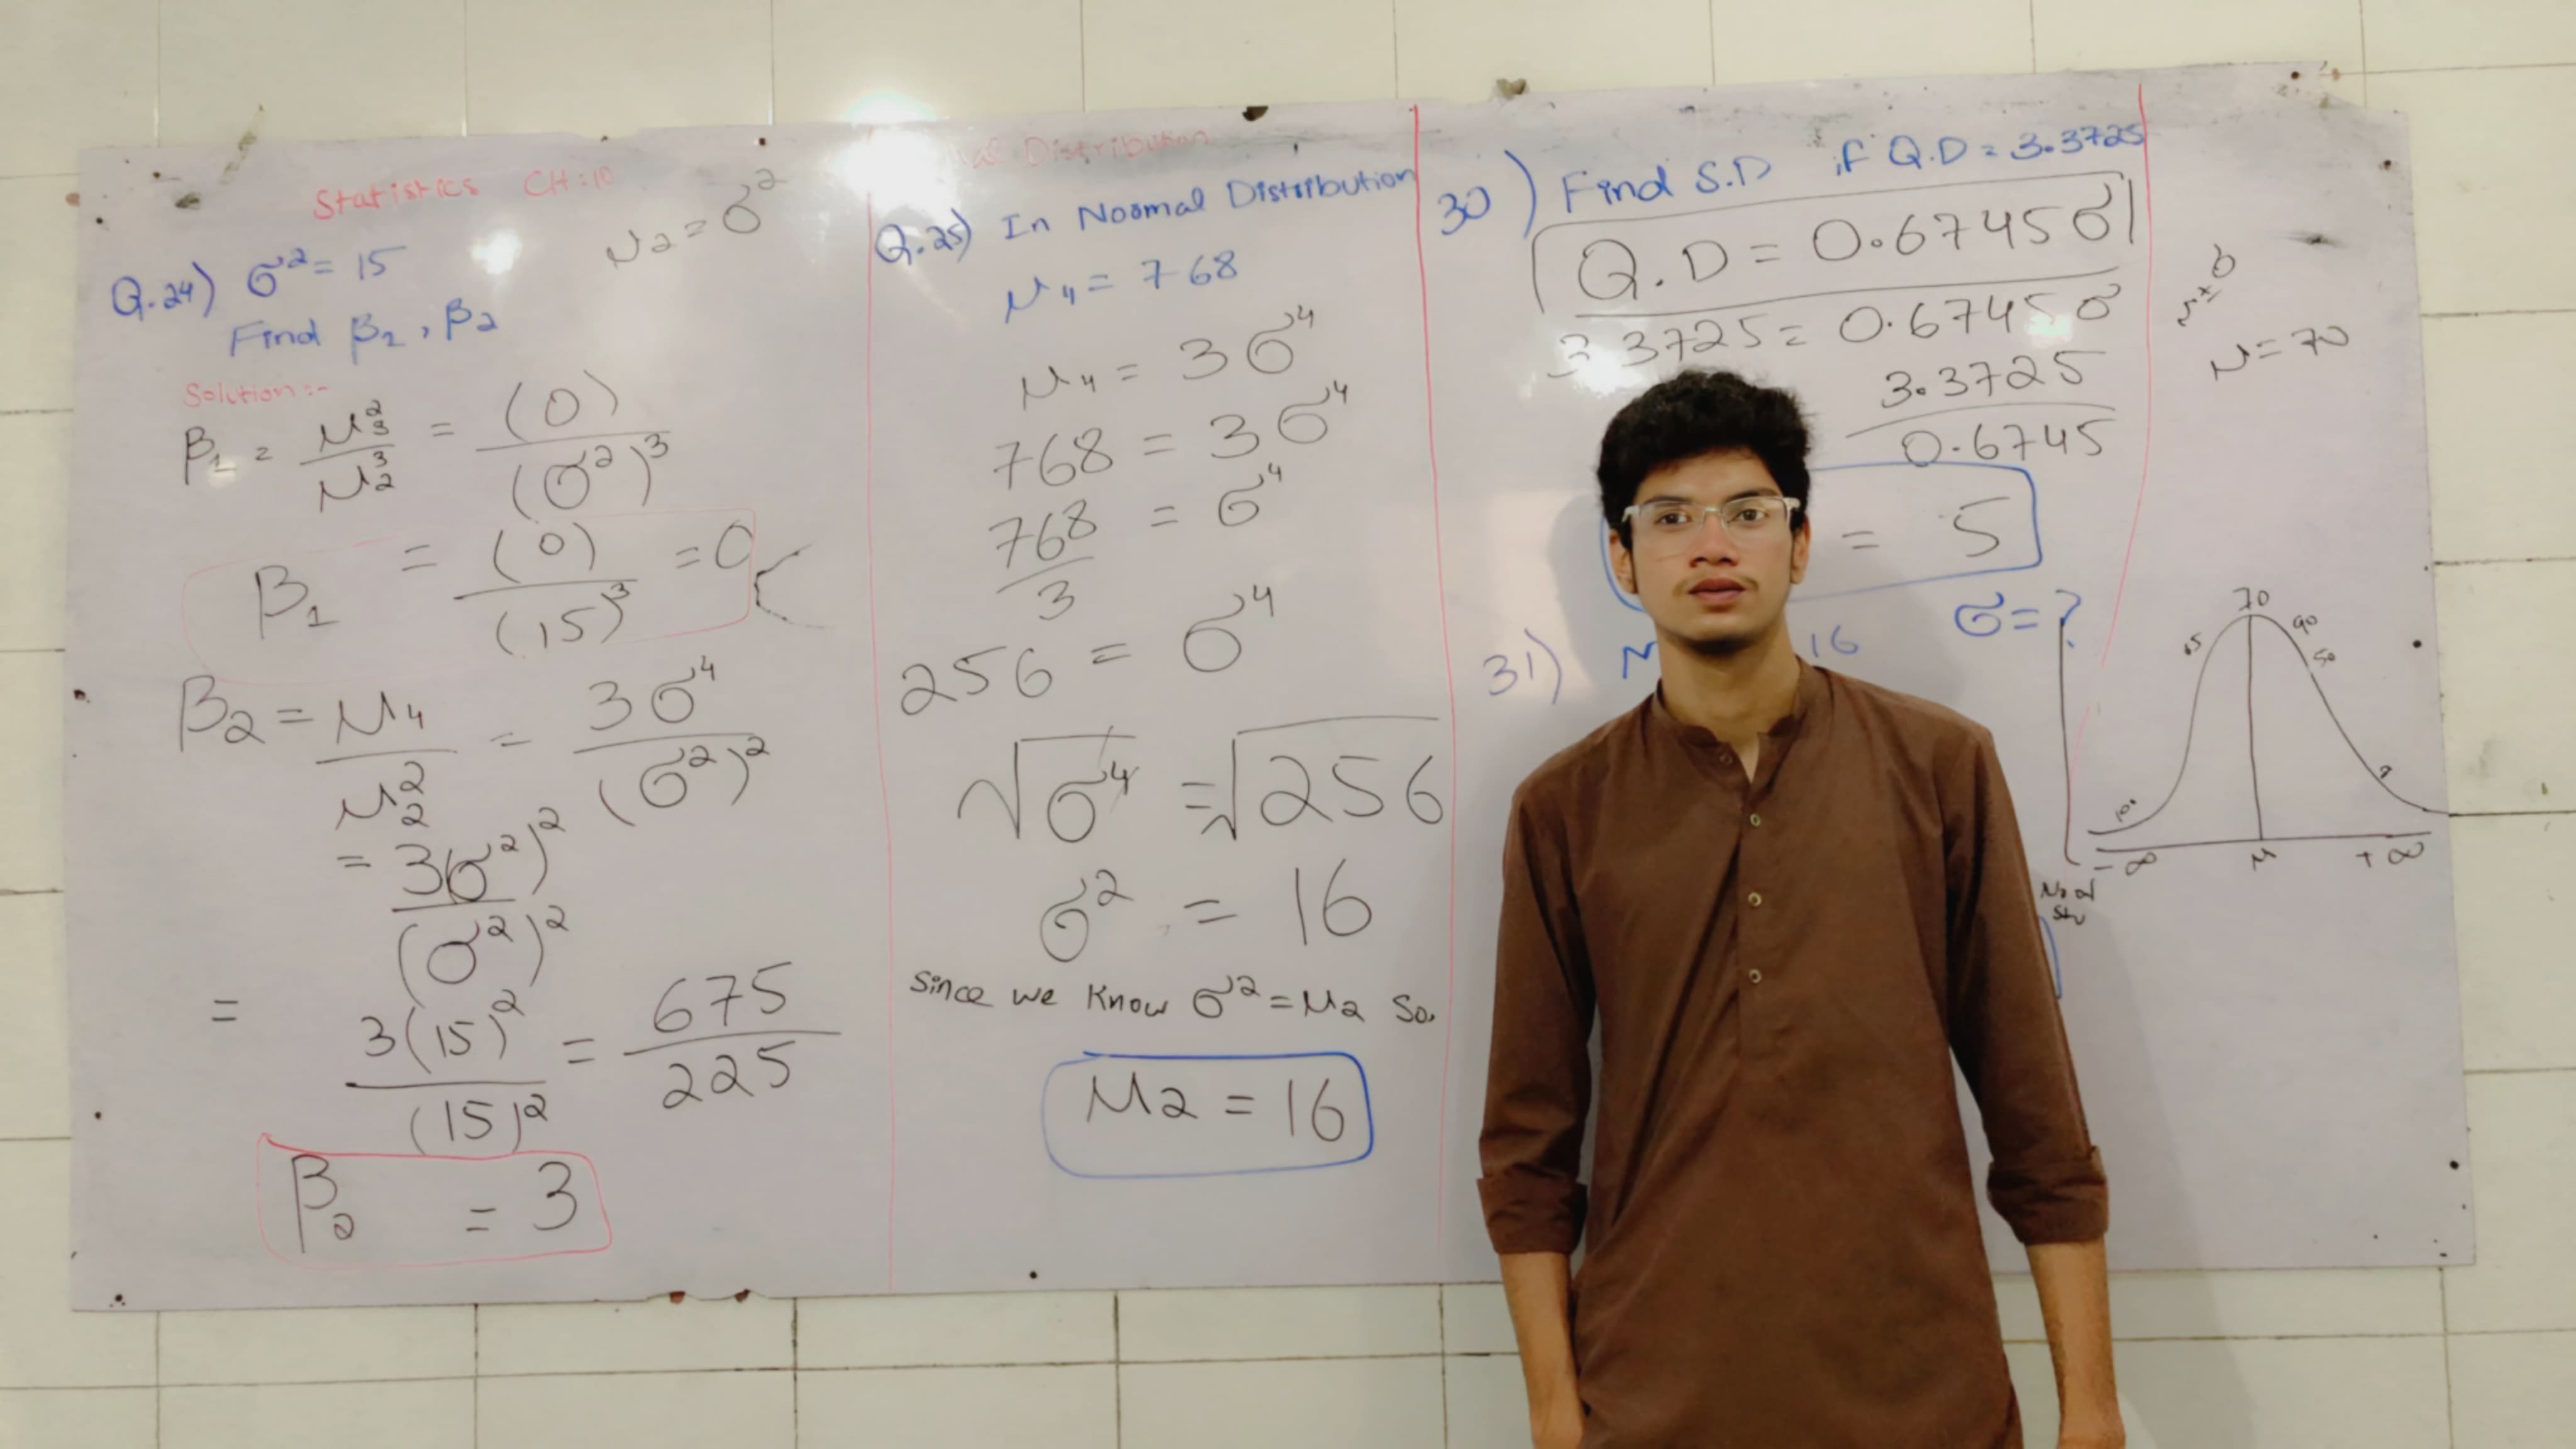 Statistics CH:10
μ2 = σ²
Q.24) σ² = 15
Find β2, β2
Solution:-
β1 = μ3² / μ2³ = (0) / (σ²)³
β1 = (0) / (15)³ = 0
β2 = μ4 / μ2² = 3σ⁴ / (σ²)²
= 3(σ²)² / (σ²)²
= 3(15)² / (15)² = 675 / 225
β2 = 3
Distribution
Q.25) In Normal Distribution
μ4 = 768
μ4 = 3σ⁴
768 = 3σ⁴
768 / 3 = σ⁴
256 = σ⁴
√σ⁴ = √256
σ² = 16
Since we know σ² = μ2 so.
μ2 = 16
30) Find S.D if Q.D = 3.3725
Q.D = 0.6745σ
3.3725 = 0.6745σ
3.3725 / 0.6745
= 5
31) 16 σ = ?
μ = 70
70
90
50
-∞ μ +∞